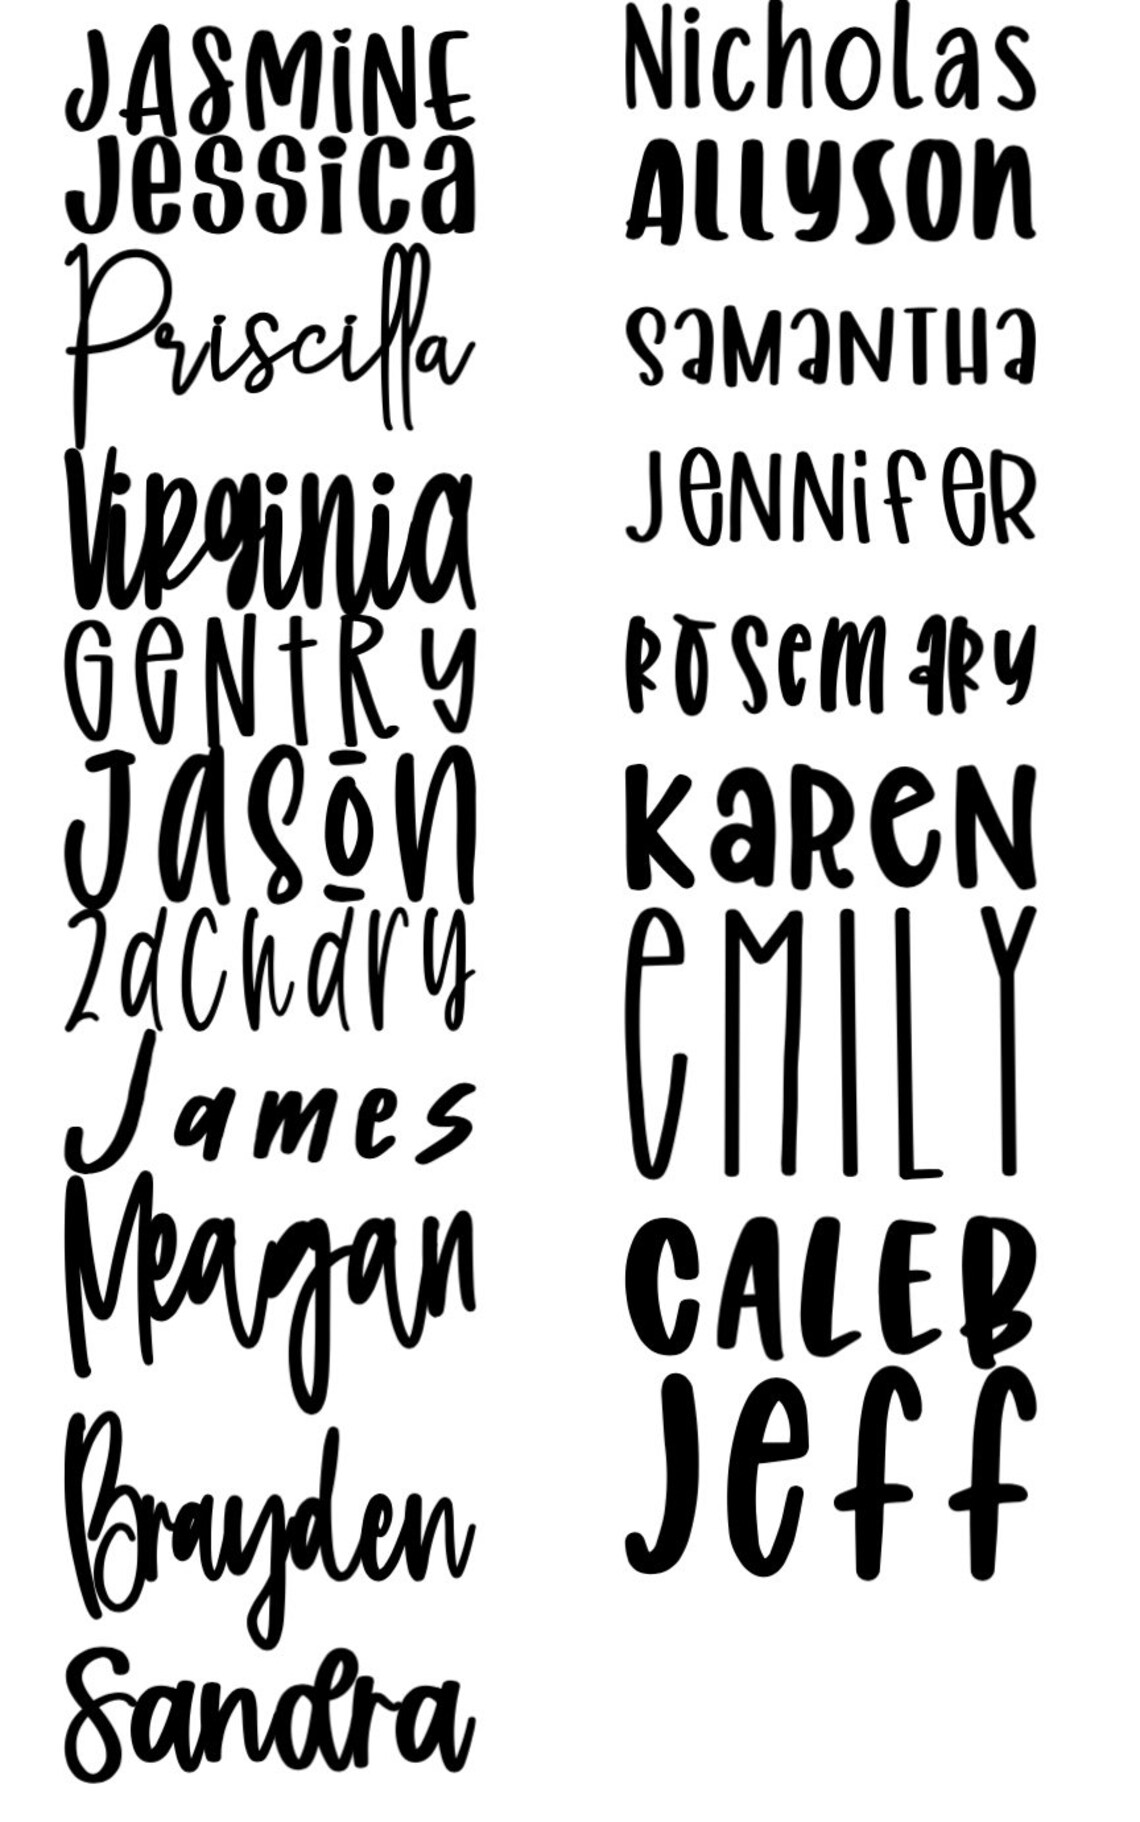 JASMiNE
Jessica
Priscilla
Virginia
GeNtRy
Jason
Zachary
James
Meagan
Brayden
Sandra
Nicholas
ALLYSON
SaMaNTHa
JeNNifeR
ROSemARy
KaReN
eMILY
CALEB
Jeff